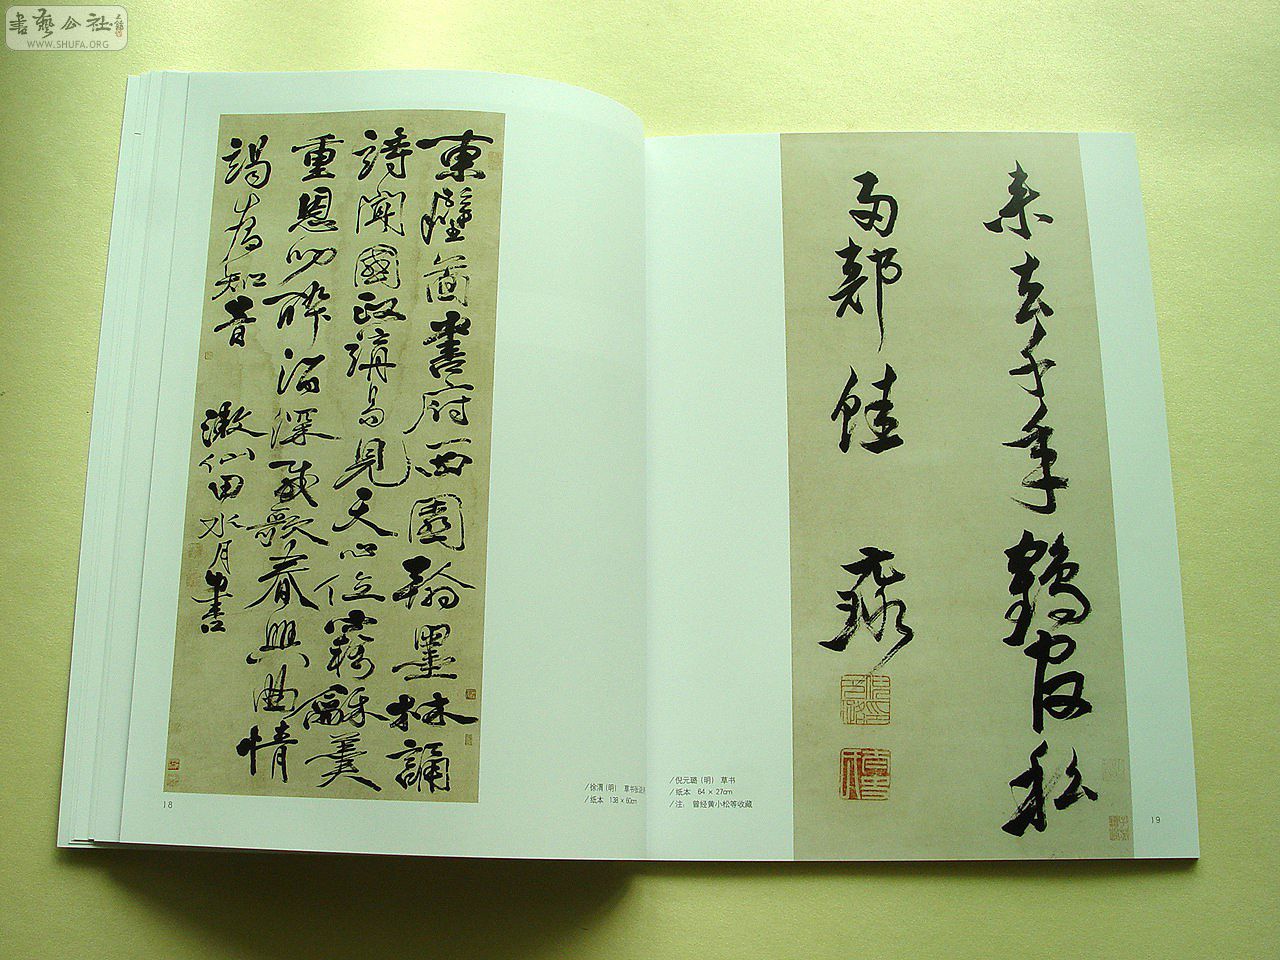 書藝公社
WWW.SHUFA.ORG
東壁啚書府西園翰墨林誦
詩聞國政講易見天心位竊龢羹
重恩叨醉深載歌春興曲情
竭為知音 漱仙田水月書
/徐渭(明) 草书张
/纸本 138×60cm
18
未去千年鶴官私
兩部蛙 元璐
/倪元璐(明) 草书
/纸本 64×27cm
/注: 曾经黄小松等收藏
19